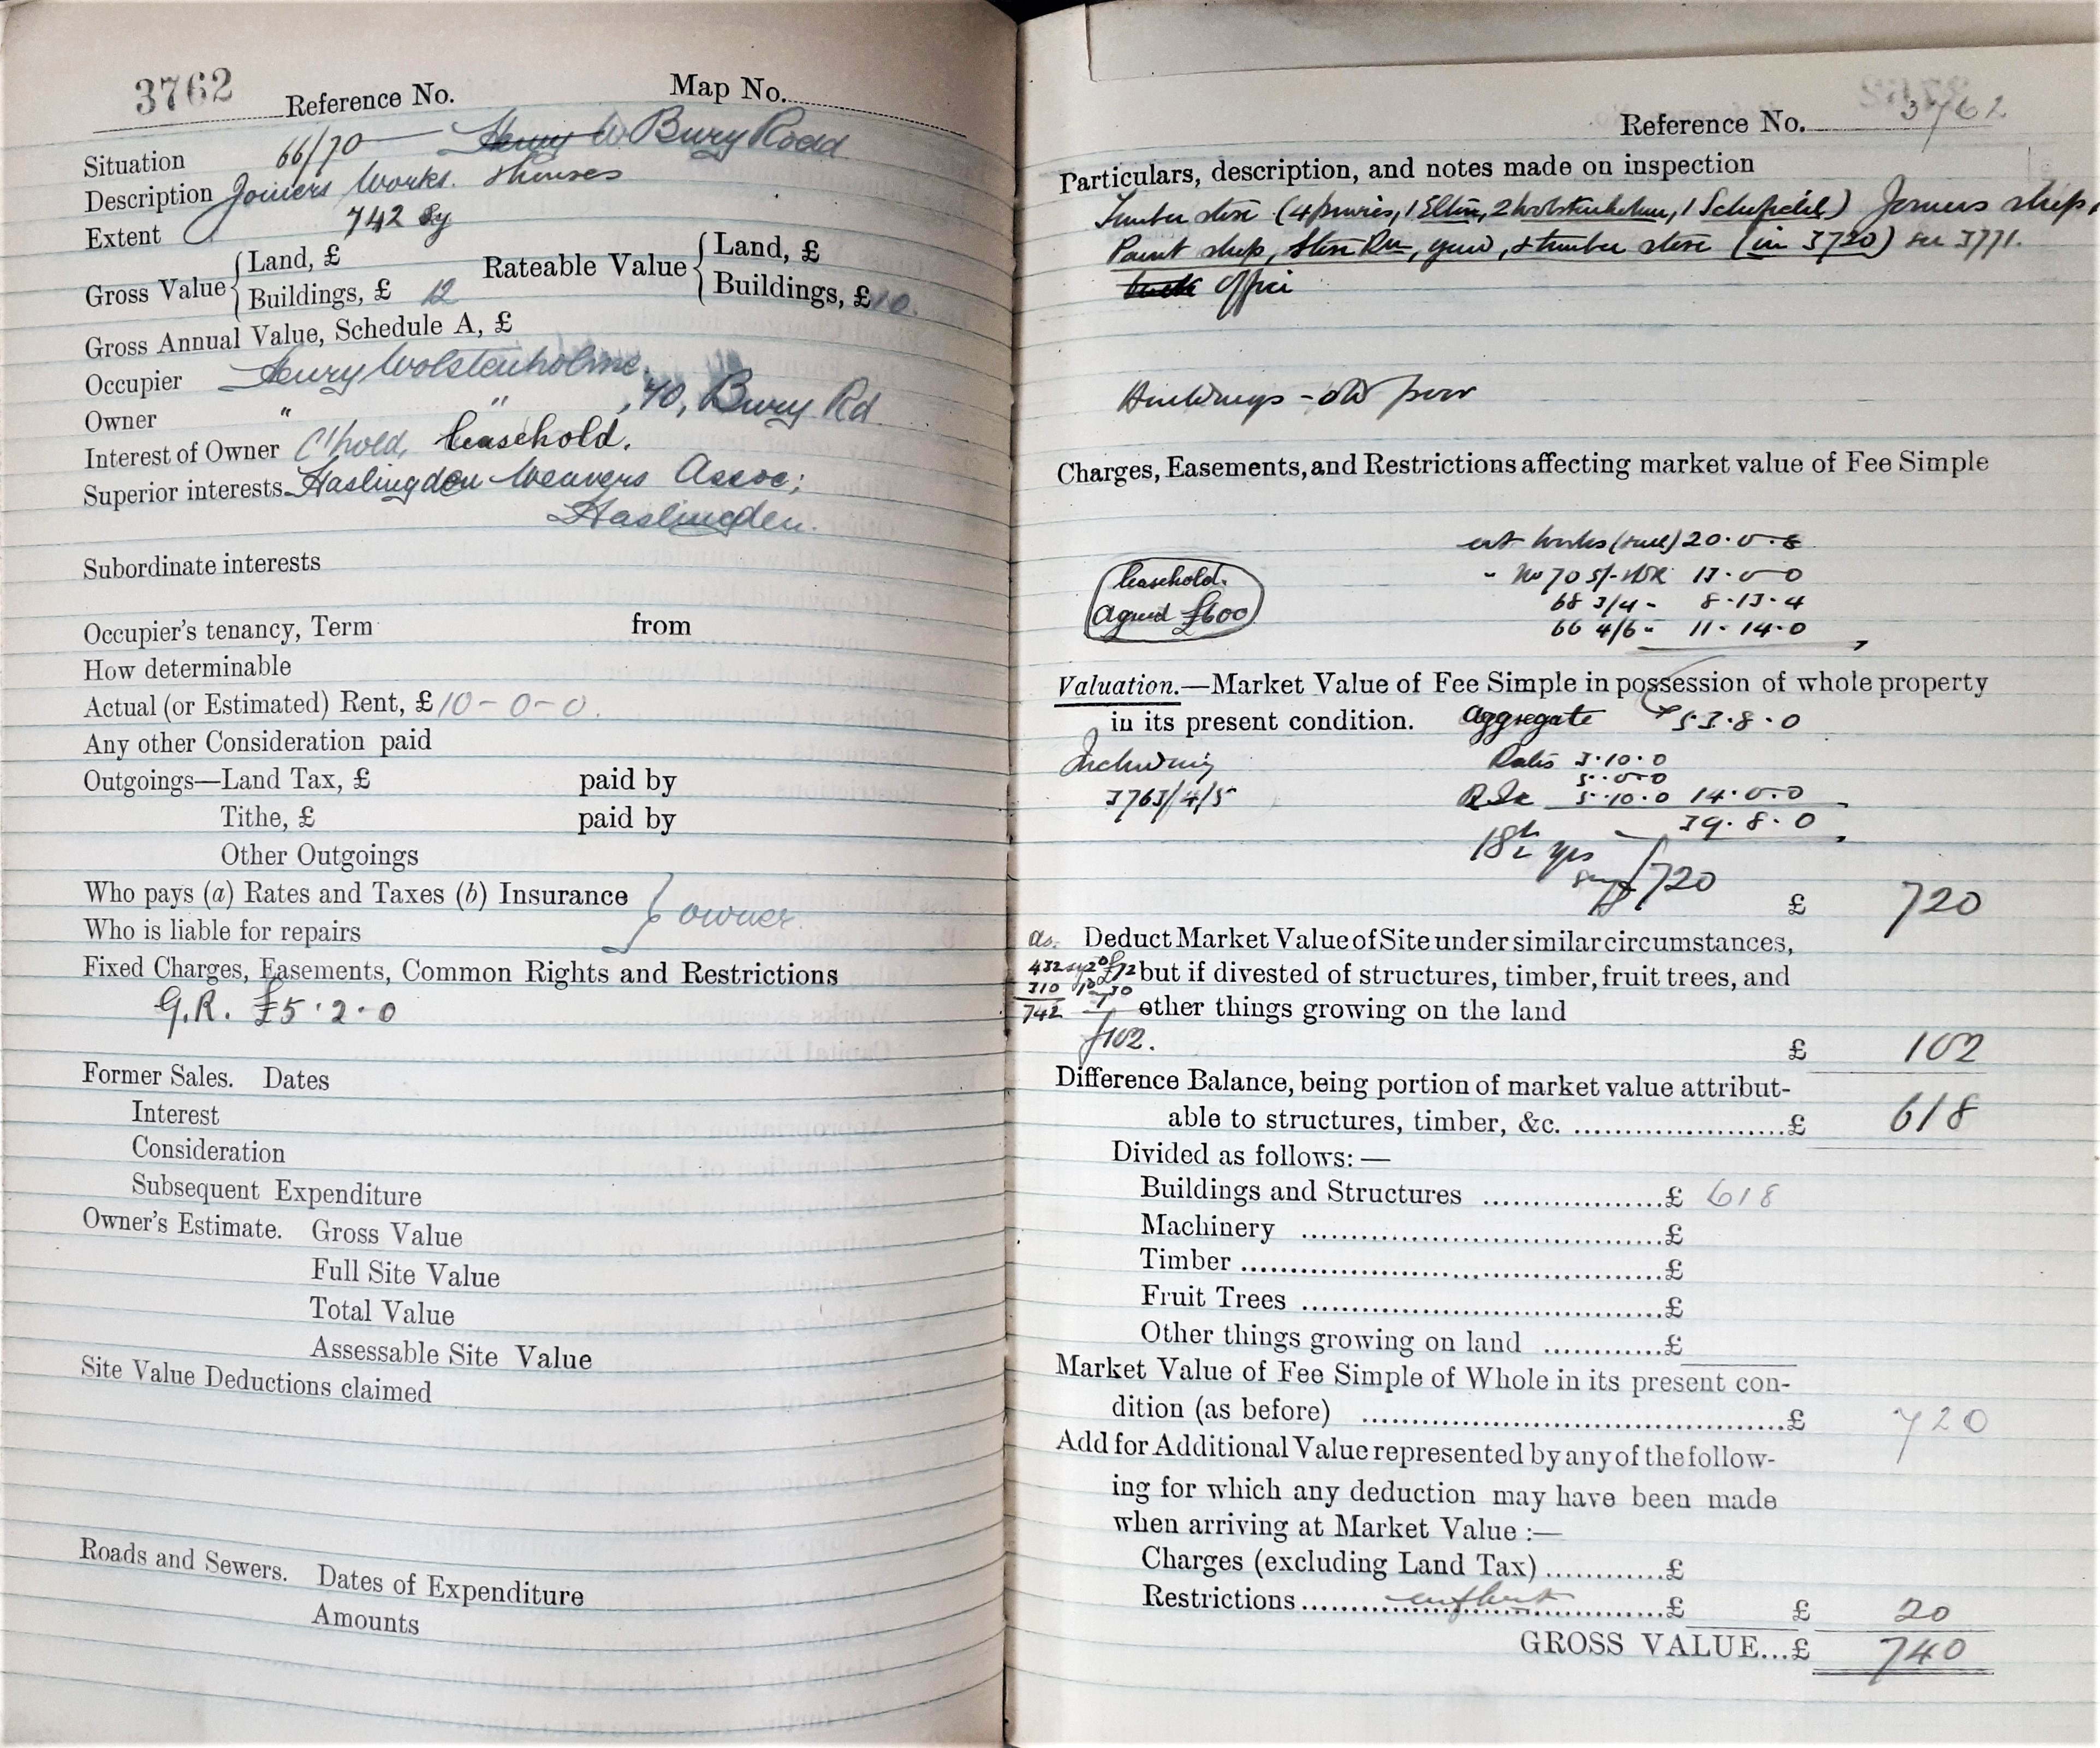 3762 Reference No. Map No.
Situation 66/70 Henry W Bury Road
Description Joiners Works. & houses
Extent 742 Sy
Gross Value { Land, £ Rateable Value { Land, £
Buildings, £ 12 Buildings, £ 10.
Gross Annual Value, Schedule A, £
Occupier Henry Wolstenholme.
Owner " " , 70, Bury Rd
Interest of Owner C'hold, leasehold.
Superior interests Haslingden Weavers Assoc;
Haslingden.
Subordinate interests
Occupier's tenancy, Term from
How determinable
Actual (or Estimated) Rent, £ 10-0-0.
Any other Consideration paid
Outgoings—Land Tax, £ paid by
Tithe, £ paid by
Other Outgoings
Who pays (a) Rates and Taxes (b) Insurance } owner.
Who is liable for repairs
Fixed Charges, Easements, Common Rights and Restrictions
G.R. £5.2.0
Former Sales. Dates
Interest
Consideration
Subsequent Expenditure
Owner's Estimate. Gross Value
Full Site Value
Total Value
Assessable Site Value
Site Value Deductions claimed
Roads and Sewers. Dates of Expenditure
Amounts
Reference No. 3762
Particulars, description, and notes made on inspection
Timber store (4 privies, 1 Elton, 2 Wolstenholme, 1 Schofield) Joiners shop,
Paint shop, Store Rm, yard, & timber store (in 3720) see 3771.
office
Buildings - old poor
Charges, Easements, and Restrictions affecting market value of Fee Simple
est works (small) 20.0.0
" No 70 5/- wk 13.0.0
leasehold.
68 3/4 " 8.13.4
Agreed £600
66 4/6 " 11.14.0
Valuation.—Market Value of Fee Simple in possession of whole property
in its present condition. Aggregate 53.8.0
Including Rates 3.10.0
5.0.0
3763/4/5 5.10.0 14.0.0
39.8.0
18½ yrs
say £720
£ 720
as. Deduct Market Value of Site under similar circumstances,
432 sy £72 but if divested of structures, timber, fruit trees, and
310 30
742 other things growing on the land
£102.
£ 102
Difference Balance, being portion of market value attribut-
able to structures, timber, &c. ......................£ 618
Divided as follows:—
Buildings and Structures ..................£ 618
Machinery ....................................£
Timber ..........................................£
Fruit Trees ....................................£
Other things growing on land ............£
Market Value of Fee Simple of Whole in its present con-
dition (as before) ............................................£ 720
Add for Additional Value represented by any of the follow-
ing for which any deduction may have been made
when arriving at Market Value :—
Charges (excluding Land Tax)............£
Restrictions....................................£ £ 20
GROSS VALUE...£ 740